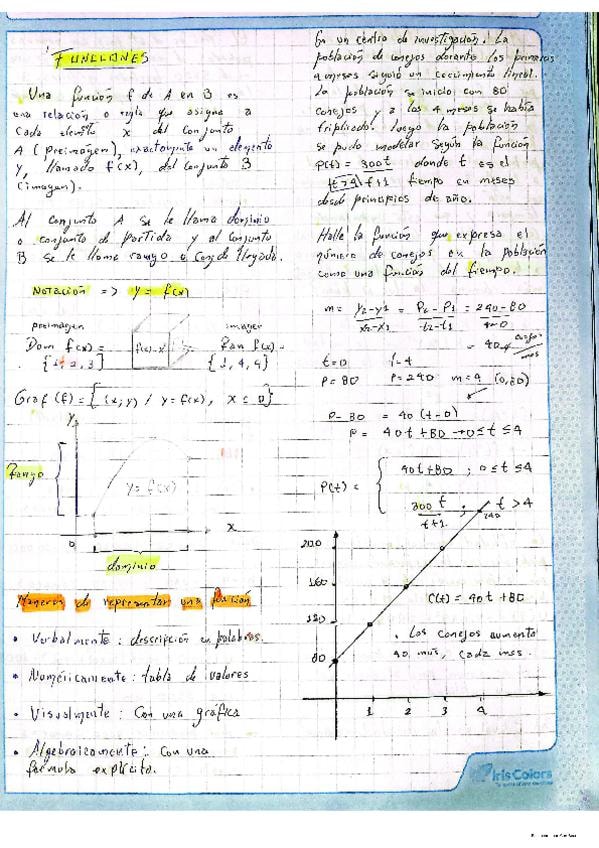 FUNCIONES
Una función f de A en B es
una relación o regla que asigna a
cada elemento x del conjunto
A (preimagen), exactamente un elemento
y, llamado f(x), del conjunto B
(imagen).
Al conjunto A se le llama dominio
o conjunto de partida y al conjunto
B se le llama rango o Conj. de llegada.
NOTACIÓN => y = f(x)
preimagen
imagen
Dom f(x) =
{1, 2, 3}
f(x)=x²
Ran f(x) =
{1, 4, 9}
Graf (f) = {(x, y) / y = f(x), x ≤ 0}
y
Rango
y = f(x)
x
0
dominio
Maneras de representar una función
• Verbalmente: descripción en palabras.
• Numéricamente: tabla de valores
• Visualmente: Con una gráfica
• Algebraicamente: Con una
fórmula explícita.
En un centro de investigación. La
población de conejos durante los primeros
4 meses siguió un crecimiento lineal.
La población se inició con 80
conejos y a los 4 meses se había
triplicado. Luego la población
se pudo modelar según la función
P(t) = 300t donde t es el
t>4 t+1 tiempo en meses
desde principios de año.
Halle la función que expresa el
número de conejos en la población
como una función del tiempo.
m = y2-y1 = P2-P1 = 240-80
x2-x1 t2-t1 4-0
= 40 conejos
mes
t=0 t=4
P=80 P=240 m=4 (0,80)
P-80 = 40(t-0)
P = 40t+80 → 0≤t≤4
P(t) =
40t+80 ; 0≤t≤4
300t ; t>4
t+1
240
200
160
120
80
C(t) = 40t+80
. Los conejos aumenta
40 más, cada mes.
1 2 3 4
Iris Colors